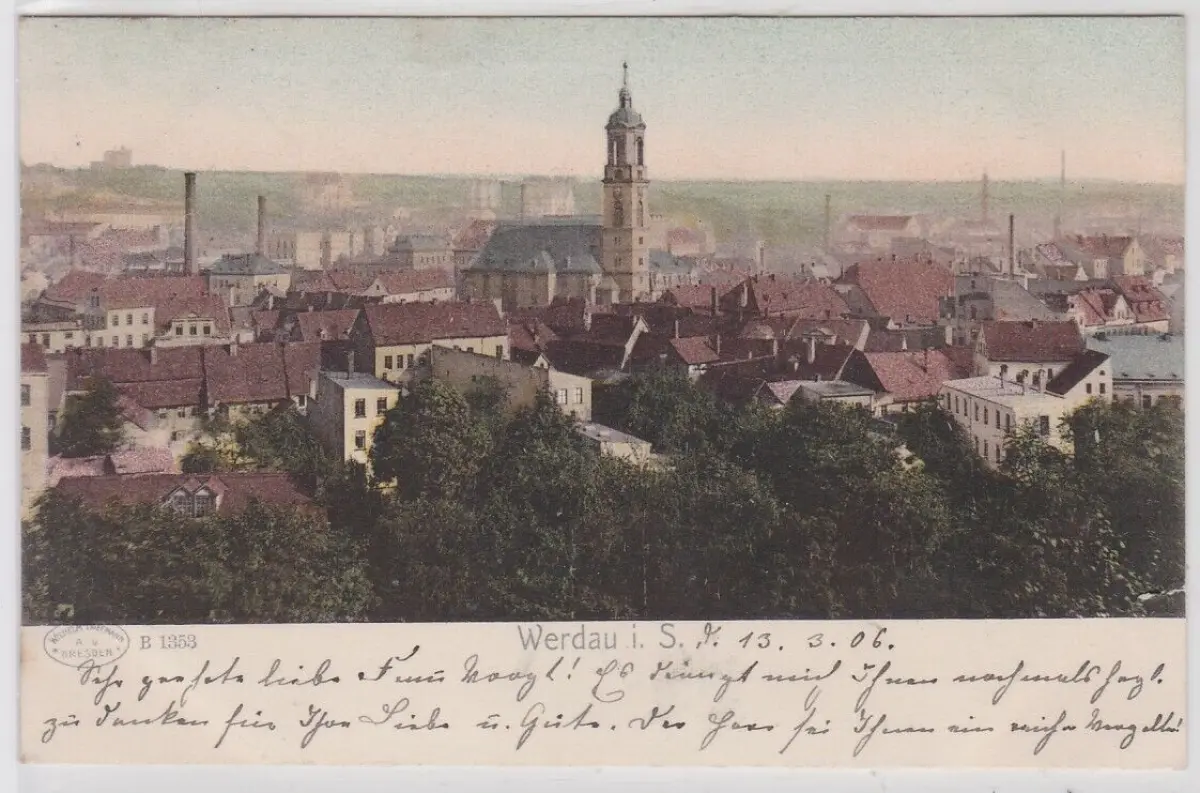 B 1353
DRESDEN
Werdau i. S. d. 13. 3. 06.
Sehr geehrte liebe Frau Voigt! Es drängt mich Ihnen nochmals herzl.
zu danken für Ihre Liebe u. Güte. Der Herr sei Ihnen ein reicher Vergelter!